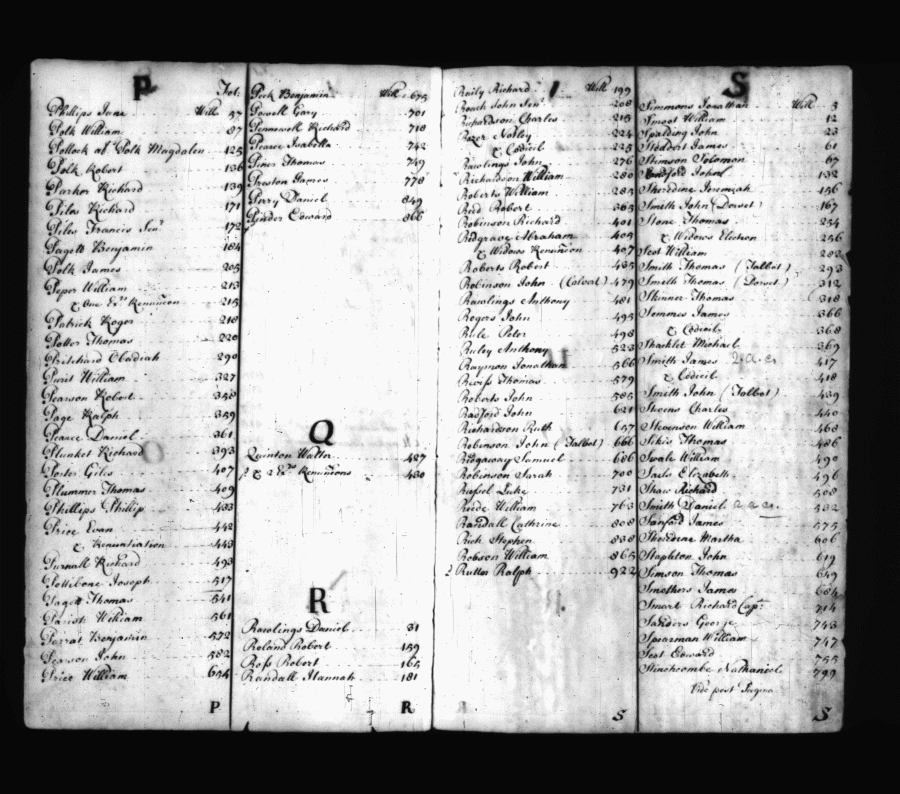 P
Fol:
Phillips Jane Will 57
Polk William 87
Pollock als Polk Magdalen 125
Polk Robert 136
Parker Richard 139
Piles Richard 171
Piles Francis Senr 172
Pagett Benjamin 184
Polk James 205
Peper William 213
& One Exrs Renuncion 215
Patrick Roger 218
Potter Thomas 220
Pritchard Obadiah 290
Purit William 327
Pearson Robert 348
Page Ralph 359
Pearce Daniel 361
Plunket Richard 393
Porter Giles 407
Plummer Thomas 409
Phillips Phillip 433
Price Evan 442
& Renuntiation 443
Purnall Richard 493
Pottibone Joseph 517
Pagett Thomas 541
Parish William 561
Parrat Benjamin 572
Pearson John 582
Price William 654
P
Peck Benjamin Will 675
Powell Gary 701
Pennewell Richard 718
Pearce Isabella 742
Piner Thomas 749
Preston James 778
Perry Daniel 849
Pinder Edward 866
Q
Quinton Walter 427
& 2 Exrs Renuncions 430
R
Rawlings Daniel 31
Roland Robert 159
Ross Robert 165
Randall Hannah 181
R
Raily Richard Will 199
Roach John Senr 208
Richardson Charles 215
Razer Notley 224
& Codicil 225
Rawlings John 276
Richardson William 280
Roberts William 285
Reed Robert 365
Robinson Richard 401
Ridgrave Abraham 405
& Widows Renuncion 407
Roberts Robert 435
Robinson John (Calvert) 479
Rawlings Anthony 481
Rogers John 495
Rule Peter 498
Ruley Anthony 523
Raymon Jonathan 566
Reess Thomas 579
Roberts John 585
Radford John 621
Richardson Ruth 657
Robinson John (Talbot) 666
Ridgaway Samuel 686
Robinson Sarah 700
Russel Luke 731
Reede William 763
Randall Cathrine 808
Rich Stephen 838
Robson William 865
Rutter Ralph 922
S
S
Simmons Jonathan Will 3
Smoot William 12
Spalding John 23
Stoddert James 61
Stimson Solomon 67
John 132
Sheredine Jeremiah 156
Smith John (Dorset) 167
Stone Thomas 254
& Widows Election 256
Scot William 282
Smith Thomas (Talbot) 293
Smith Thomas (Dorset) 312
Skinner Thomas 318
Semmes James 366
& Codicils 368
Shacklet Michael 369
Smith James 417
& Codicil 418
Smith John (Talbot) 439
Stevens Charles 440
Stevenson William 468
Sikes Thomas 486
Swale William 490
Seels Elizabeth 496
Shaw Richard 508
Smith Daniel 532
Sanford James 575
Sheredine Martha 606
Stapleton John 619
Simson Thomas 649
Smothers James 684
Smart Richard Capt: 714
Sanders George 743
Spearman William 747
Scot Edward 755
Stinchcombe Nathaniel 799
Vide post Pagina
S